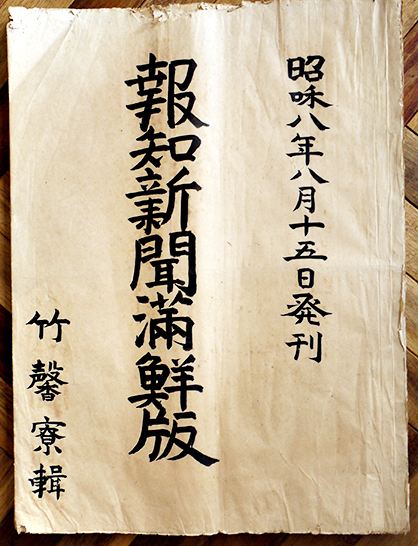 昭和八年八月十五日発刊
報知新聞滿鮮版
竹馨寮輯